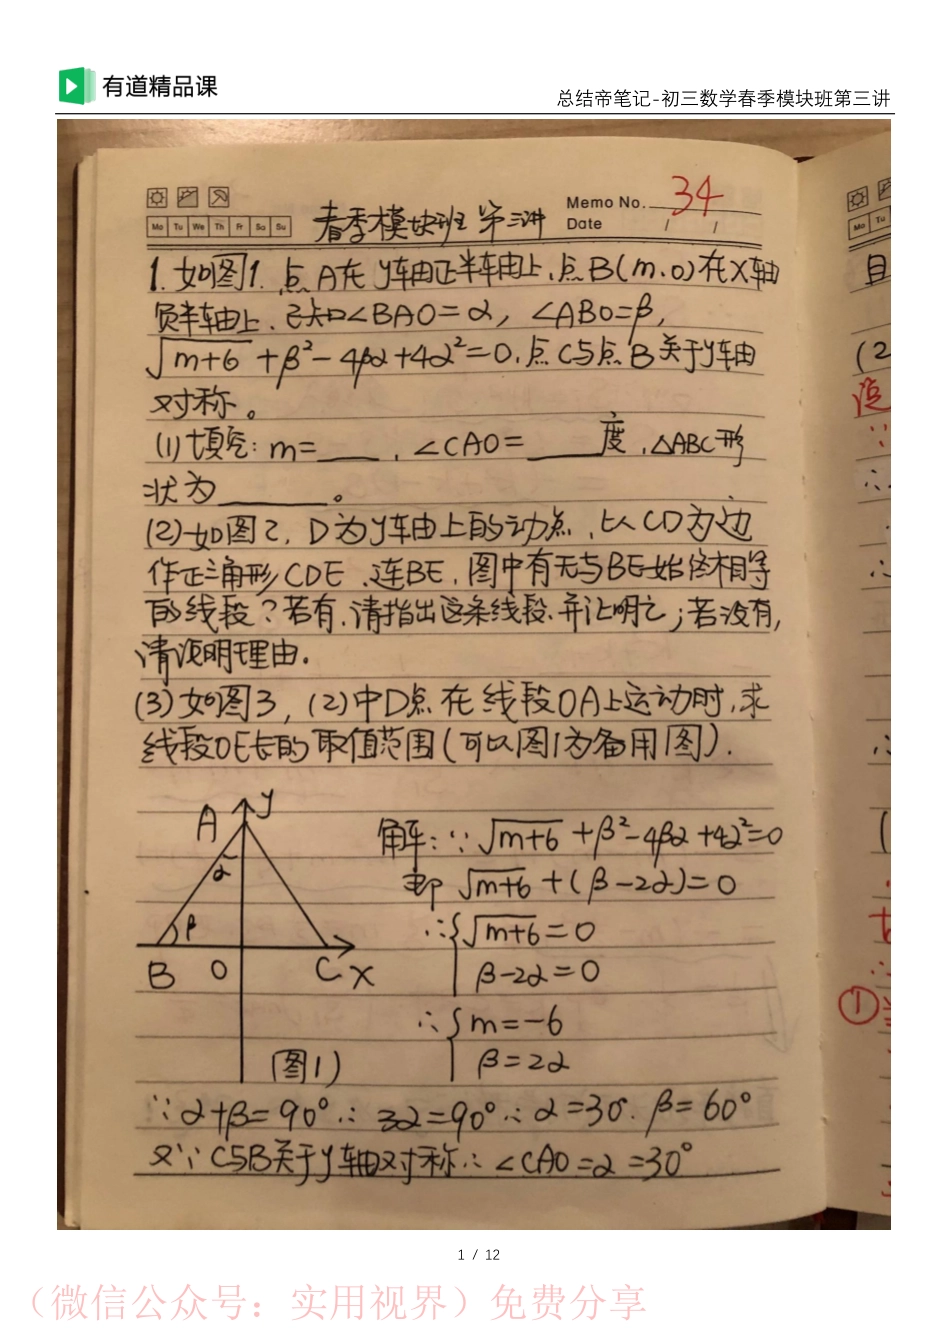 有道精品课
总结帝笔记-初三数学春季模块班第三讲
Memo No. 34
Mo Tu We Th Fr Sa Su
春季模块班 第三讲
Date / /
1. 如图1. 点A在y轴正半轴上，点B(m.0)在X轴
负半轴上. 已知∠BAO=α, ∠ABO=β,
√m+6 +β²-4βα+4α²=0. 点C与点B关于y轴
对称。
(1)填空: m=___, ∠CAO=____度, △ABC形
状为______。
(2)如图2, D为y轴上的动点, 以CD为边
作正三角形CDE、连BE, 图中有无与BE始终相等
的线段？若有.请指出这条线段.并证明之；若没有,
请说明理由.
(3)如图3, (2)中D点在线段OA上运动时,求
线段OE长的取值范围(可以图1为备用图).
A y
α
β
B O C X
(图1)
解: ∵ √m+6 +β²-4βα+4α²=0
即 √m+6 +(β-2α)=0
∴{ √m+6 =0
β-2α=0
∴{ m=-6
β=2α
∵ α+β=90° ∴ 3α=90° ∴ α=30°. β=60°
又∵ C与B关于y轴对称 ∴ ∠CAO=α=30°
Mo Tu
且
(2
∵
∴
∴
∴
(
∴
①当
1 / 12
（微信公众号：实用视界）免费分享